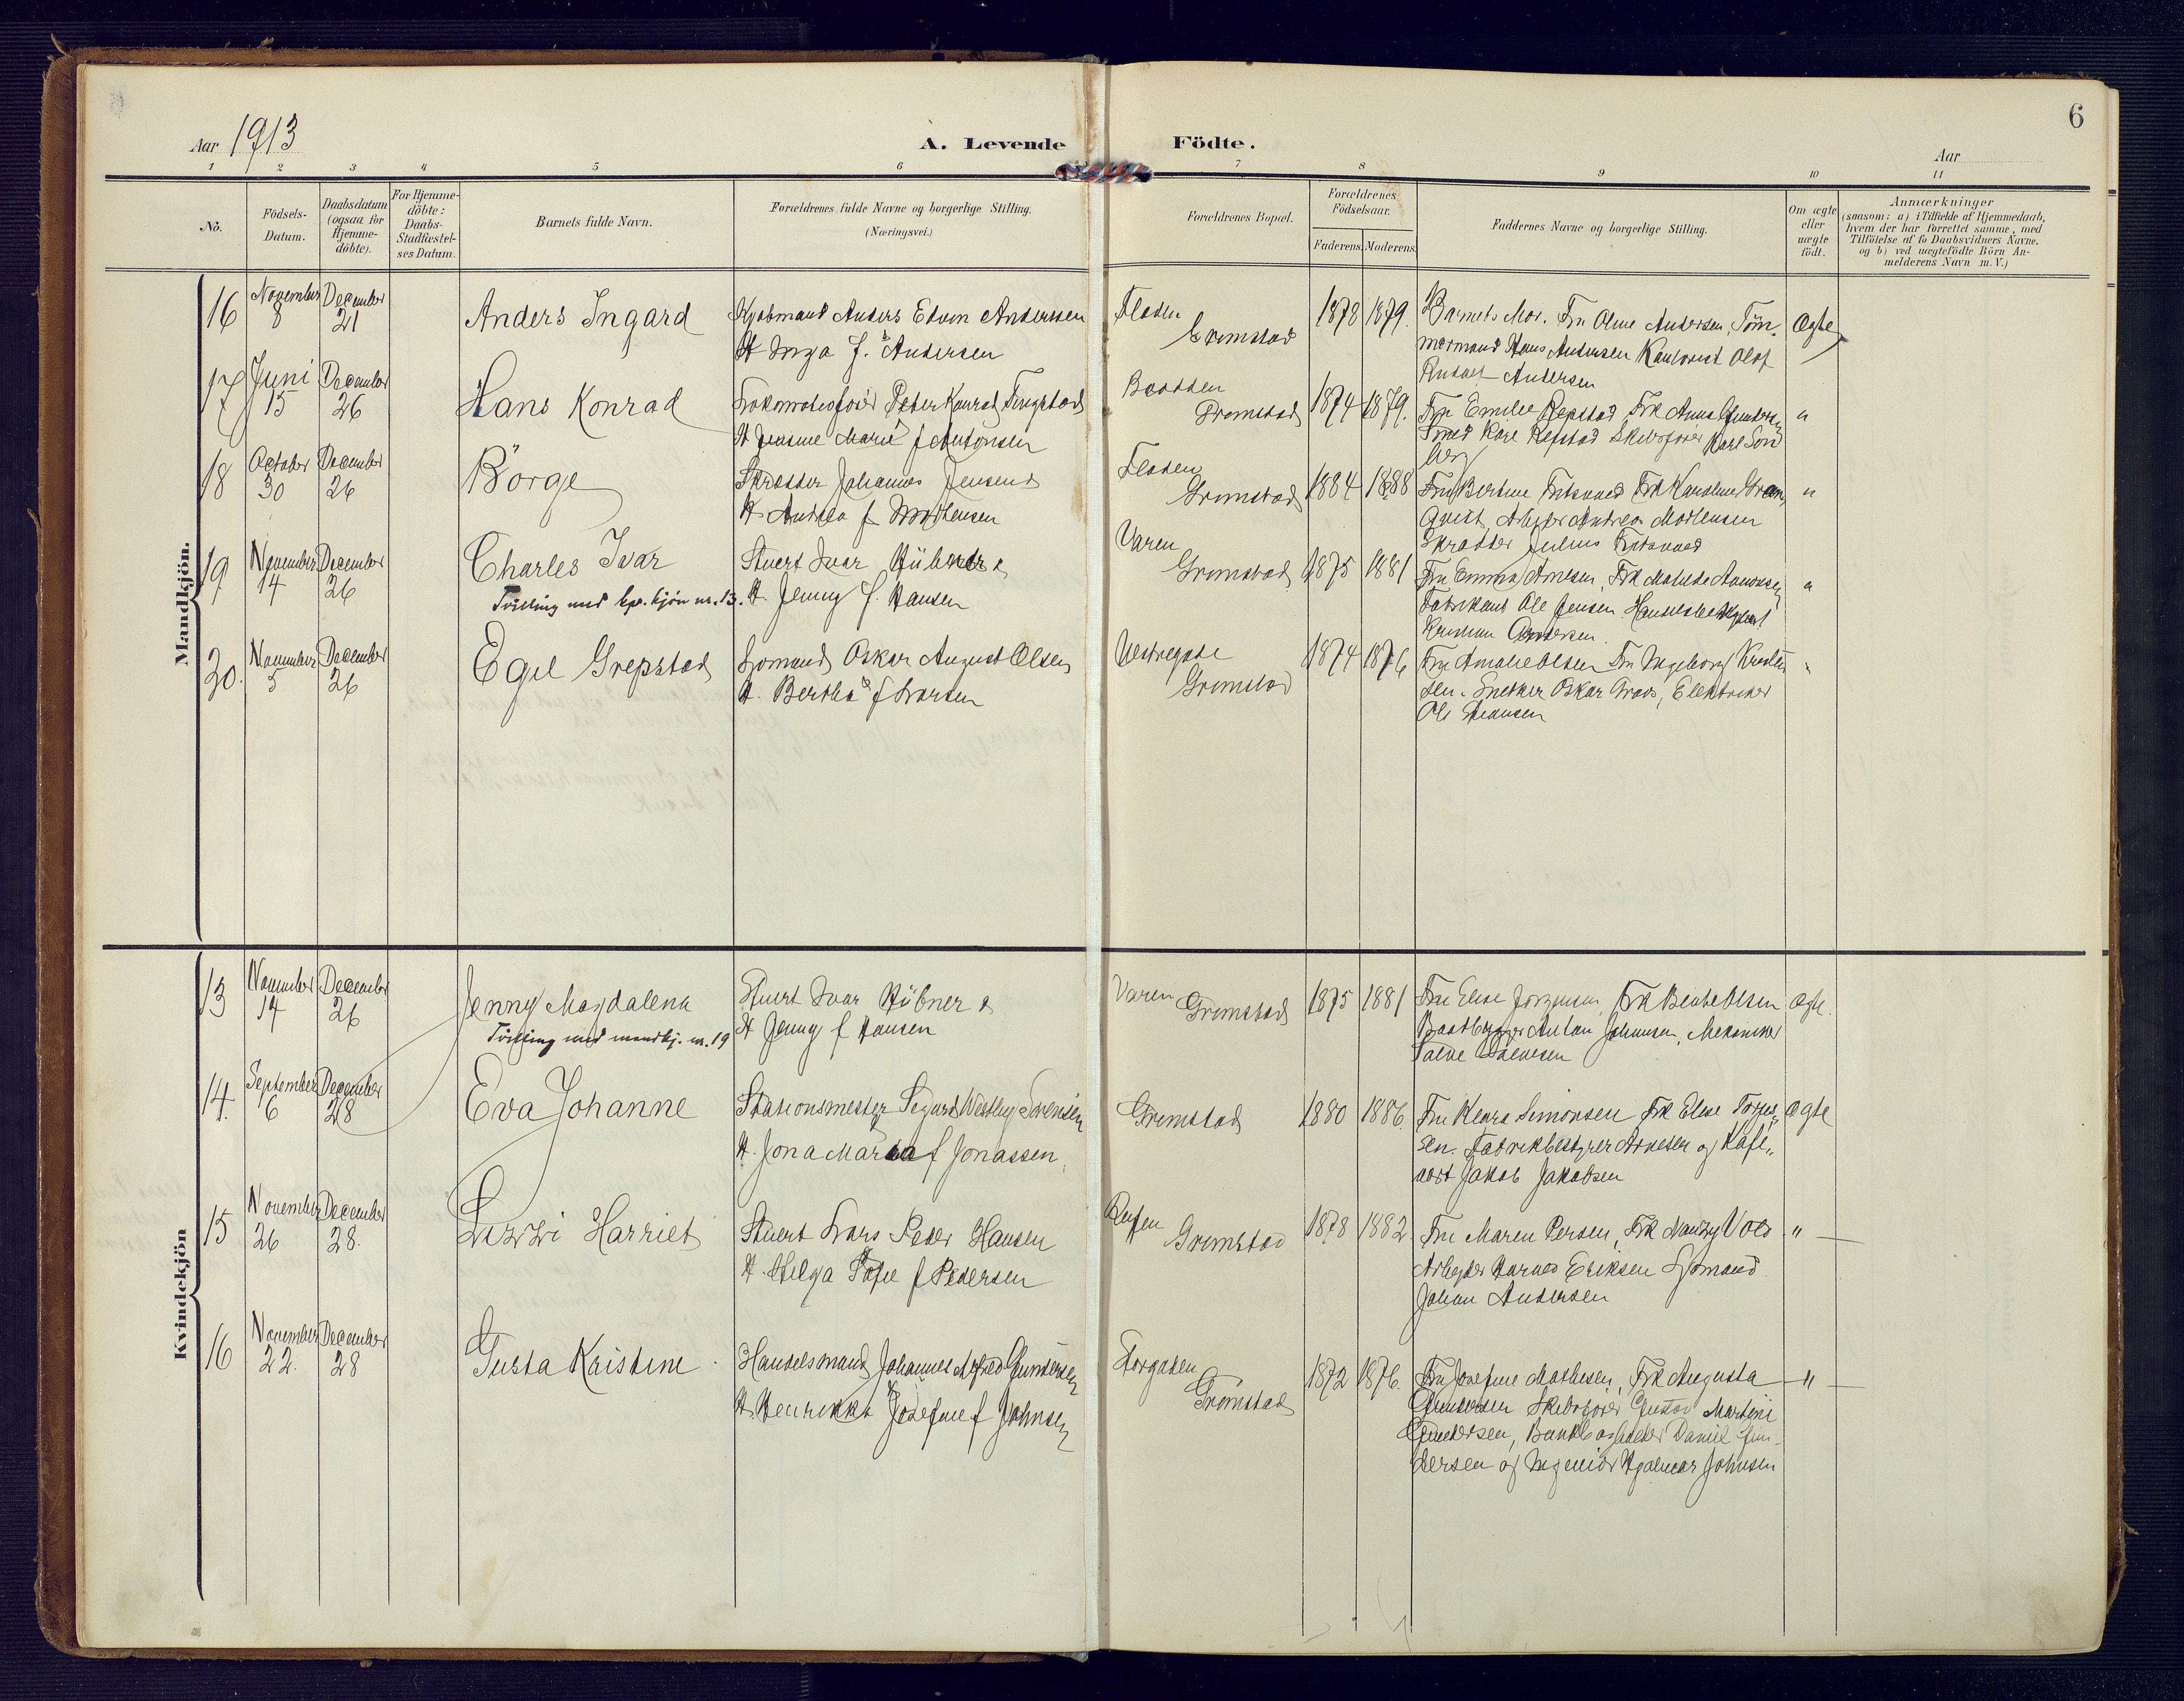 6
Aar 1913
A. Levende Födte.
Aar
1 2 3 4 5 6 7 8 9 10 11
No.
Födsels-
Datum.
Daabsdatum
(ogsaa for
Hjemme-
döbte).
For Hjemme-
döbte:
Daabs-
Stadfæstel-
ses Datum.
Barnets fulde Navn.
Forældrenes fulde Navne og borgerlige Stilling.
(Næringsvei.)
Forældrenes Bopæl.
Forældrenes
Födselsaar.
Faderens. Moderens.
Faddernes Navne og borgerlige Stilling.
Om ægte
eller
uægte
födt.
Anmærkninger
(saasom: a) i Tilfælde af Hjemmedaab,
hvem der har forrettet samme, med
Tilföielse af to Daabsvidners Navne,
og b) ved uægtefödte Börn An-
melderens Navn m. V.)
Mandkjön.
16
November
8
December
21
Anders Ingard
Kjøbmand Anders Edvin Anderssen
H Inga f. Andersen
Floden
Grimstad
1878 1879.
Barnets Mor. Fru Oline Andersen, Töm-
mermand Hans Andersen Kontorist Olaf
Rudolf Andersen
Ægte
17
Juni
15
December
26
Hans Konrad
Lokomotivfører Peter Konrad Tingstad
H Jensine Marie f Antonsen
Grimstad
1874 1879.
Fru Emilie Repstad Frk Anna Gundersen
Smed Kåre Repstad Skibsfører Karl Sön
berg
"
18
October
30
December
26
Börge
Skrædder Johannes Jensen &
H Andrea f Mortensen
Floden
Grimstad
1884 1888
Fru Bertine Fritsvold Frk Karoline Gran,
qvist, Arbeider Andreas Mortensen
Skrædder Julius Fritsvold
"
19.
November
14
December
26
Charles Ivar
Tvilling med kv. kjön nr. 13.
Stuert Ivar Hübner &
H. Jenny f. Hansen
Varen
Grimstad
1875 1881
Fru Emma Arnesen, Frk Mathilde
Fabrikant Ole Jensen, Handelsbetjent
Kristian Andersen.
"
20.
November
5
December
26
Egil Grepstad
Sjömand Oskar August Olsen
H. Bertha f Larsen
Vestregade
Grimstad
1874 1876
Fru Amalie Olsen Fru Ingeborg Kristen
sen. Snekker Oskar Graas, Elektriker
Ole
"
Kvindekjön
13
November
14
December
26
Jenny Magdalena
Tvilling med mandkj. nr. 19
Stuert Ivar Hübner &
H Jenny f Hansen
Varen
Grimstad
1875 1881
Fru Elise Jörgensen, Frk Olsen
Baatbygger Anton Johnsen, Mekaniker
Salve Salvesen
Ægte.
14.
September
6
December
28
Eva Johanne
Stationsmester Sigurd Westby Sørensen
H. Jona Maria f Jonassen
Grimstad
1880 1886.
Fru Klara Simonsen Frk Elise Torjus,
sen. Fabrikbestyrer Arnesen og Kafe,,
vert Jakob Jakobsen
Ægte
15
November
26
December
28.
Lizzi Harriet
Stuert Lars Peder Hansen
H. Helga Tofie f Pedersen
Grimstad
1878 1882
Fru Maren Persen, Frk Nanny Vold
Arbeyder Eriksen Sjömand
Johan Andersen
"
16
November
22.
December
28
Gusta Kristine
Handelsmand Johannes Alfred Gundersen
H. Henrikke Josefine f Johnsen
Storgaden
Grimstad
1872 1876.
Fru Josefine Mathisen, Frk Augusta
Gundersen Skibsfører Gustav Martini
Gundersen, Daniel Gun-
dersen og Ingeniör Hjalmar Johnsen
"